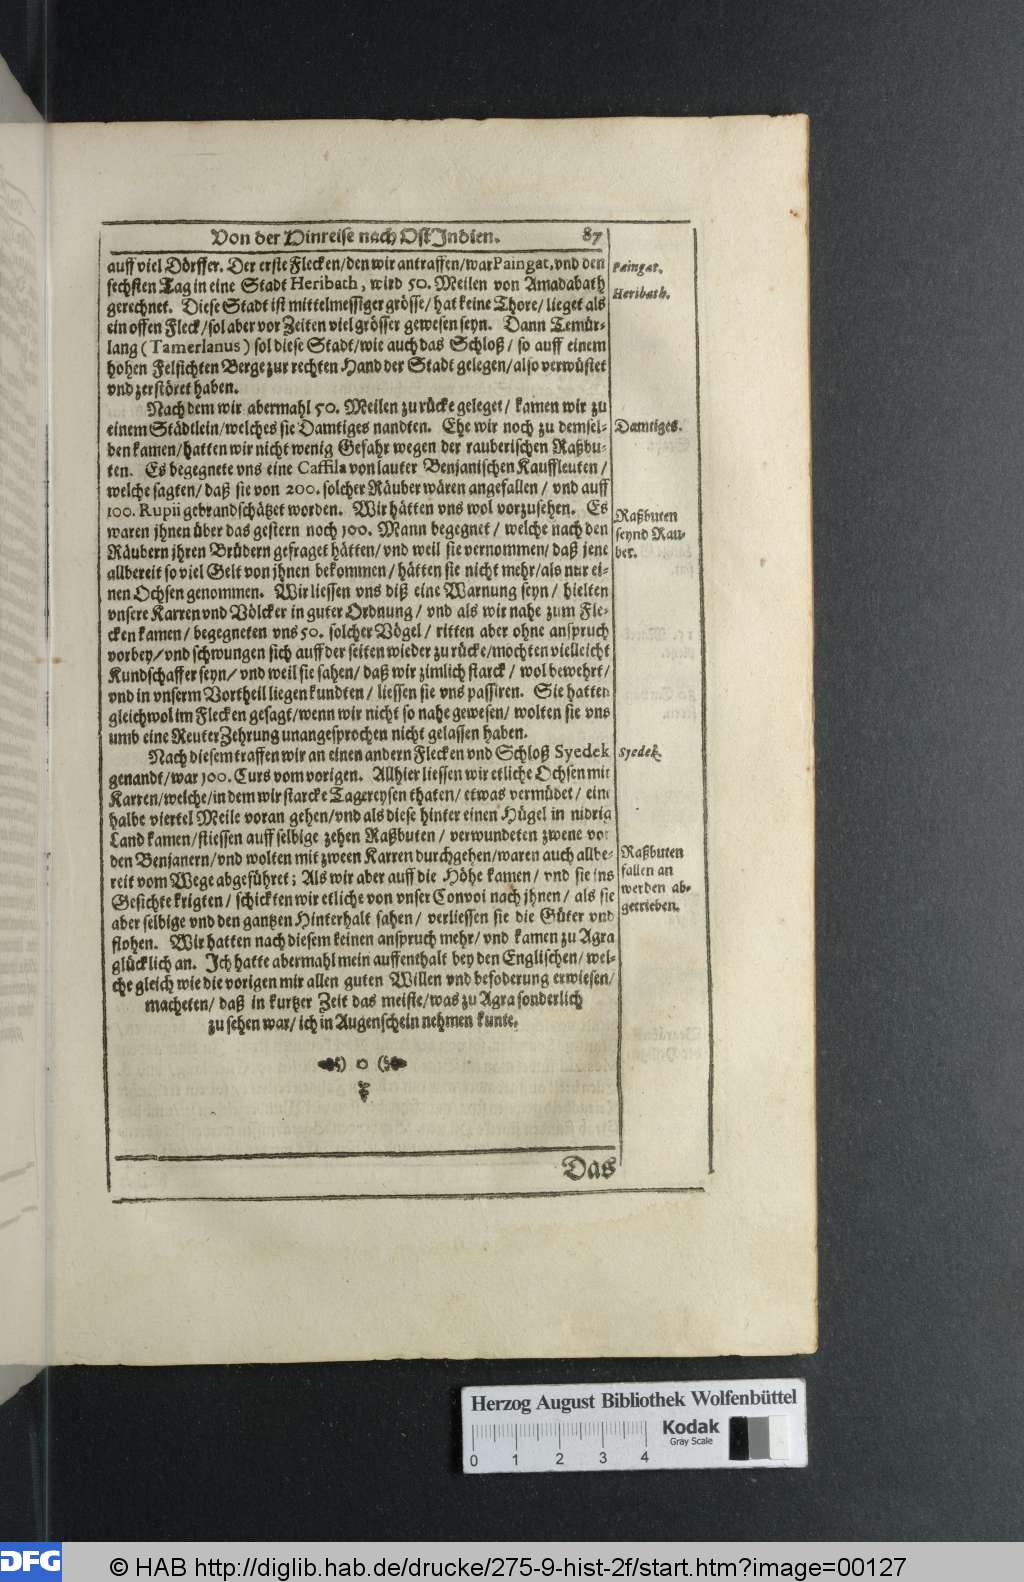 Von der Hinreise nach Ost Indien. 87
auff viel Dörffer. Der erste Flecken/den wir antraffen/war Paingat, vnd den
sechsten Tag in eine Stadt Heribath, wird 50. Meilen von Amadabath
gerechnet. Diese Stadt ist mittelmessiger grösse/ hat keine Thore/ lieget als
ein offen Fleck/sol aber vor Zeiten viel grösser gewesen seyn. Dann Temür-
lang (Tamerlanus) sol diese Stadt/wie auch das Schloß/ so auff einem
hohen Felsichten Berge zur rechten Hand der Stadt gelegen/also verwüstet
vnd zerstöret haben.
Paingat.
Heribath.
Nach dem wir abermahl 50. Meilen zu rücke geleget/ kamen wir zu
einem Städtlein/welches sie Damtiges nandten. Ehe wir noch zu demsel-
ben kamen/hatten wir nicht wenig Gefahr wegen der rauberischen Raßbu-
ten. Es begegnete vns eine Caffila von lauter Benjanischen Kauffleuten/
welche sagten/ daß sie von 200. solcher Räuber wären angefallen/ vnd auff
100. Rupii gebrandschätzet worden. Wir hätten vns wol vorzusehen. Es
waren jhnen über das gestern noch 100. Mann begegnet/ welche nach den
Räubern jhren Brüdern gefraget hätten/vnd weil sie vernommen/ daß jene
allbereit so viel Gelt von jhnen bekommen/ hätten sie nicht mehr/als nur ei-
nen Ochsen genommen. Wir liessen vns diß eine Warnung seyn/ hielten
vnsere Karren vnd Völcker in guter Ordnung/ vnd als wir nahe zum Fle-
cken kamen/ begegneten vns 50. solcher Vögel/ ritten aber ohne anspruch
vorbey/vnd schwungen sich auff der seiten wieder zu rücke/mochten vielleicht
Kundschaffer seyn/ vnd weil sie sahen/ daß wir zimlich starck/ wol bewehrt/
vnd in vnserm Vortheil liegen kundten/ liessen sie vns passiren. Sie hatten
gleichwol im Flecken gesagt/wenn wir nicht so nahe gewesen/ wolten sie vns
umb eine Reuter Zehrung unangesprochen nicht gelassen haben.
Damtiges.
Raßbuten
seynd Rau-
ber.
Nach diesem traffen wir an einen andern Flecken vnd Schloß Syedek
genandt/war 100. Curs vom vorigen. Allhier liessen wir etliche Ochsen mit
Karren/welche/in dem wir starcke Tagereysen thaten/ etwas vermüdet/ eine
halbe viertel Meile voran gehen/vnd als diese hinter einen Hügel in nidrig
Land kamen/stiessen auff selbige zehen Raßbuten/ verwundeten zwene von
den Benjanern/vnd wolten mit zween Karren durchgehen/waren auch allbe-
reit vom Wege abgeführet; Als wir aber auff die Höhe kamen/ vnd sie ins
Gesichte krigten/ schickten wir etliche von vnser Convoi nach jhnen/ als sie
aber selbige vnd den gantzen Hinterhalt sahen/ verliessen sie die Güter vnd
flohen. Wir hatten nach diesem keinen anspruch mehr/ vnd kamen zu Agra
glücklich an. Ich hatte abermahl mein auffenthalt bey den Englischen/ wel-
che gleich wie die vorigen mir allen guten Willen vnd befoderung erwiesen/
macheten/ daß in kurtzer Zeit das meiste/was zu Agra sonderlich
zu sehen war/ ich in Augenschein nehmen kunte.
Syedek.
Raßbuten
fallen an
werden ab-
getrieben.
Das
Herzog August Bibliothek Wolfenbüttel
Kodak
Gray Scale
0 1 2 3 4
DFG
© HAB http://diglib.hab.de/drucke/275-9-hist-2f/start.htm?image=00127